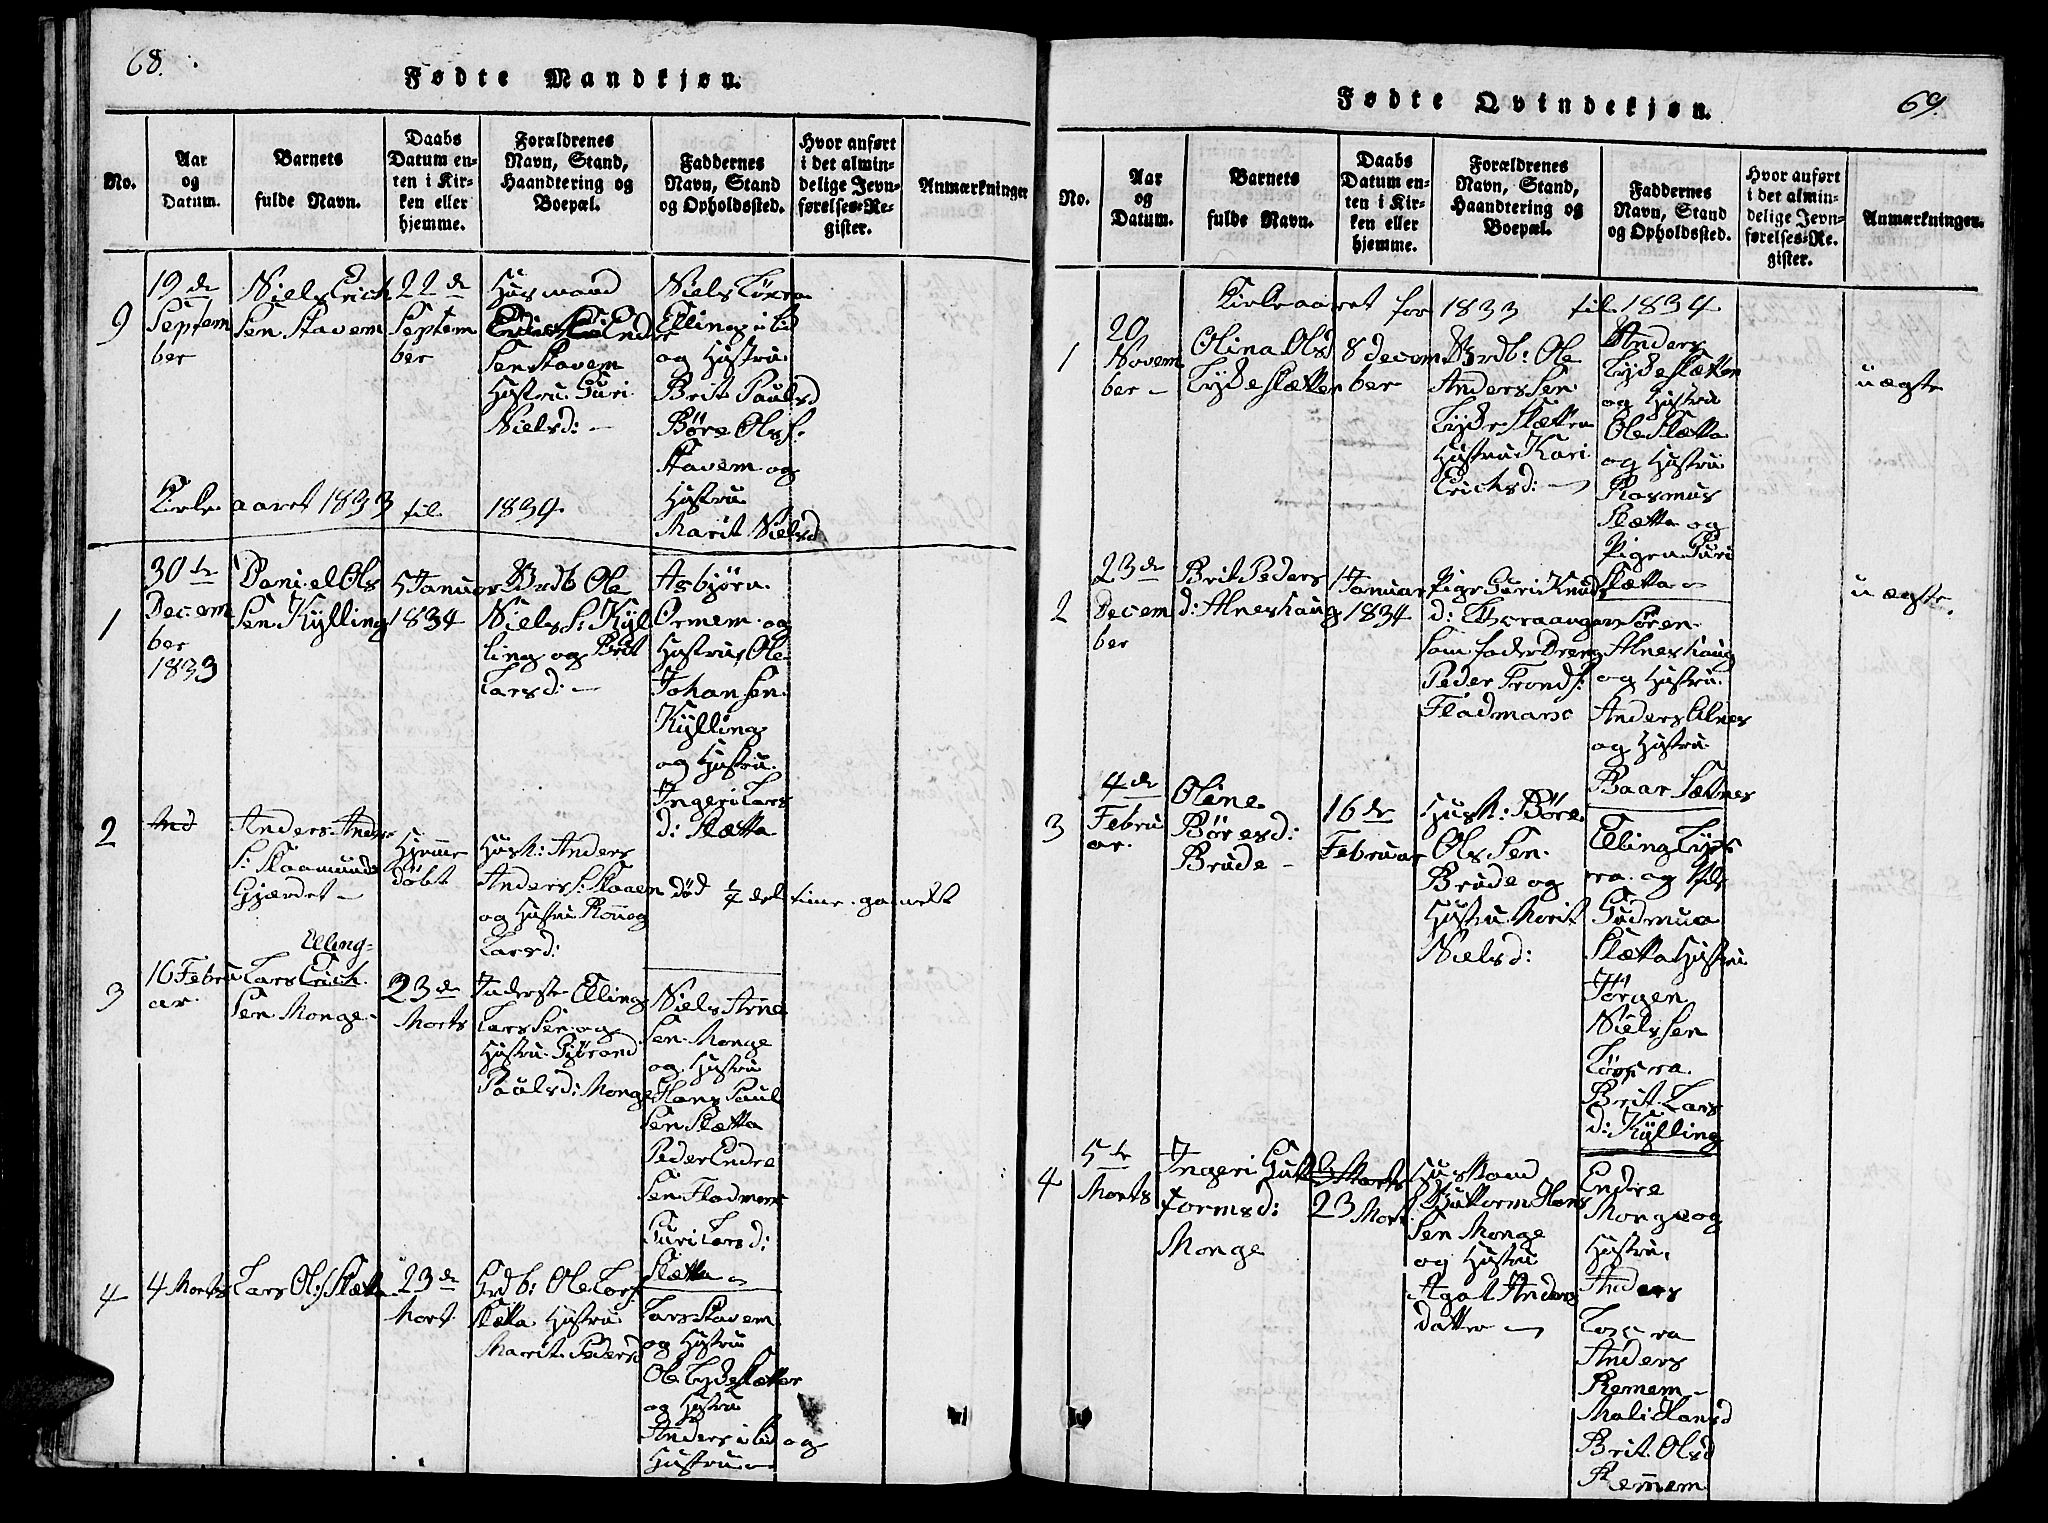 68.
Fødte Mandkjøn.
No.
Aar
og
Datum.
Barnets
fulde Navn.
Daabs
Datum en-
ten i Kir-
ken eller
hjemme.
Forældrenes
Navn, Stand,
Haandtering og
Boepæl.
Faddernes
Navn, Stand
og Opholdssted.
Hvor anført
i det almin-
delige Jevn-
førelses-Re-
gister.
Anmærkninger
9
19de
Septem
ber
Niels Erich
Sen Stavem
22de
Septem
ber
Husmand
Sen Stavem
Hustru Guri
Nielsd: -
Niels
Elling i Lid
og Hustru
Brit Paulsd
Børe Olss:
Stavem og
Hustru
Marit Nielsd
Kirke aaret 1833 til 1834
1
30te
Decem
ber
1833
Daniel Ols
Sen Kylling
5 Januar
1834
Grdb Ole
Niels S: Kyl
ling og Brit
Larsd: -
Asbjørn
Ormem og
Hustru, Ole
Johan Sen
Kylling
og Hustru
Ingeri Lars
d: Slætta
2
Anders Anders
S:
Gjærdet -
Hjemme
døbt
Husm: Anders
Anders S:
og Hustru
Larsd:
død ½ del time gamelt
3
16 Febru
ar.
Elling-
Lars Erich
Sen Monge -
23de
Marts
Inderste Elling
Lars Sen og
Hustru Gjørand
Paulsd: Monge
Niels Arne
Sen Monge
og Hustru
Hans Paul
Sen Slætta
Peder Endre
Sen Fladmark
Guri Larsd:
Slætta
4
4 Marts
Lars Ol: Slætta
23de
Mart.
Grdb: Ole Lars
Slætta Hustru
Marit Pedersd
Lars Stavem
og Hustru
Ole Lyde Slætten
og Hustru
Anders i Lid og
Hustru
69.
Fødte Qvindekjøn.
No.
Aar
og
Datum.
Barnets
fulde Navn.
Daabs
Datum en-
ten i Kir-
ken eller
hjemme.
Forældrenes
Navn, Stand,
Haandtering og
Boepæl.
Faddernes
Navn, Stand
og Opholdssted.
Hvor anført
i det almin-
delige Jevn-
førelses-Re-
gister.
Anmærkninger.
Kirkeaaret for 1833 til 1834
1
20
Novem
ber -
Olina Olsd
Lyde Slætten
8 decem
ber
Grdb: Ole
Anders Sen
Lyde Slætten
Hustru Kari
Erichsd: -
Anders
Lyde Slætten
og Hustru
Ole Slætta
og Hustru
Rasmus
Slætta og
Pigen Guri
Slætta
uægte
2
23de
Decem
ber
Brit Peders
d: Alneshaug
1 Januar
1834
Pige Guri Knuds
d:
Peder Tronds:
Fladmark
Søren
Alneshaug
og Hustru
Anders Alnes
og Hustru
Baar Sætnes
uægte
3
4de
Febru
ar.
Oline
Børesd:
Brude -
16de
Februar
Husm: Børe
Ols Sen
Brude og
Hustru Marit
Nielsd:
Elling
og
Gudmun
Slætta Hustru
Jørgen
Niels Sen
Brit Lars
d: Kylling
4
5te
Marts
Ingeri Gut
tormsd:
Monge
3 Marts
23 Mart
Husmand
Guttorm Hans
Sen Monge
og Hustru
Agat Anders
datter -
Endre
Monge og
Hustru,
Anders
Anders
Remem
Mali Hansd
Brit Olsd
Remmem